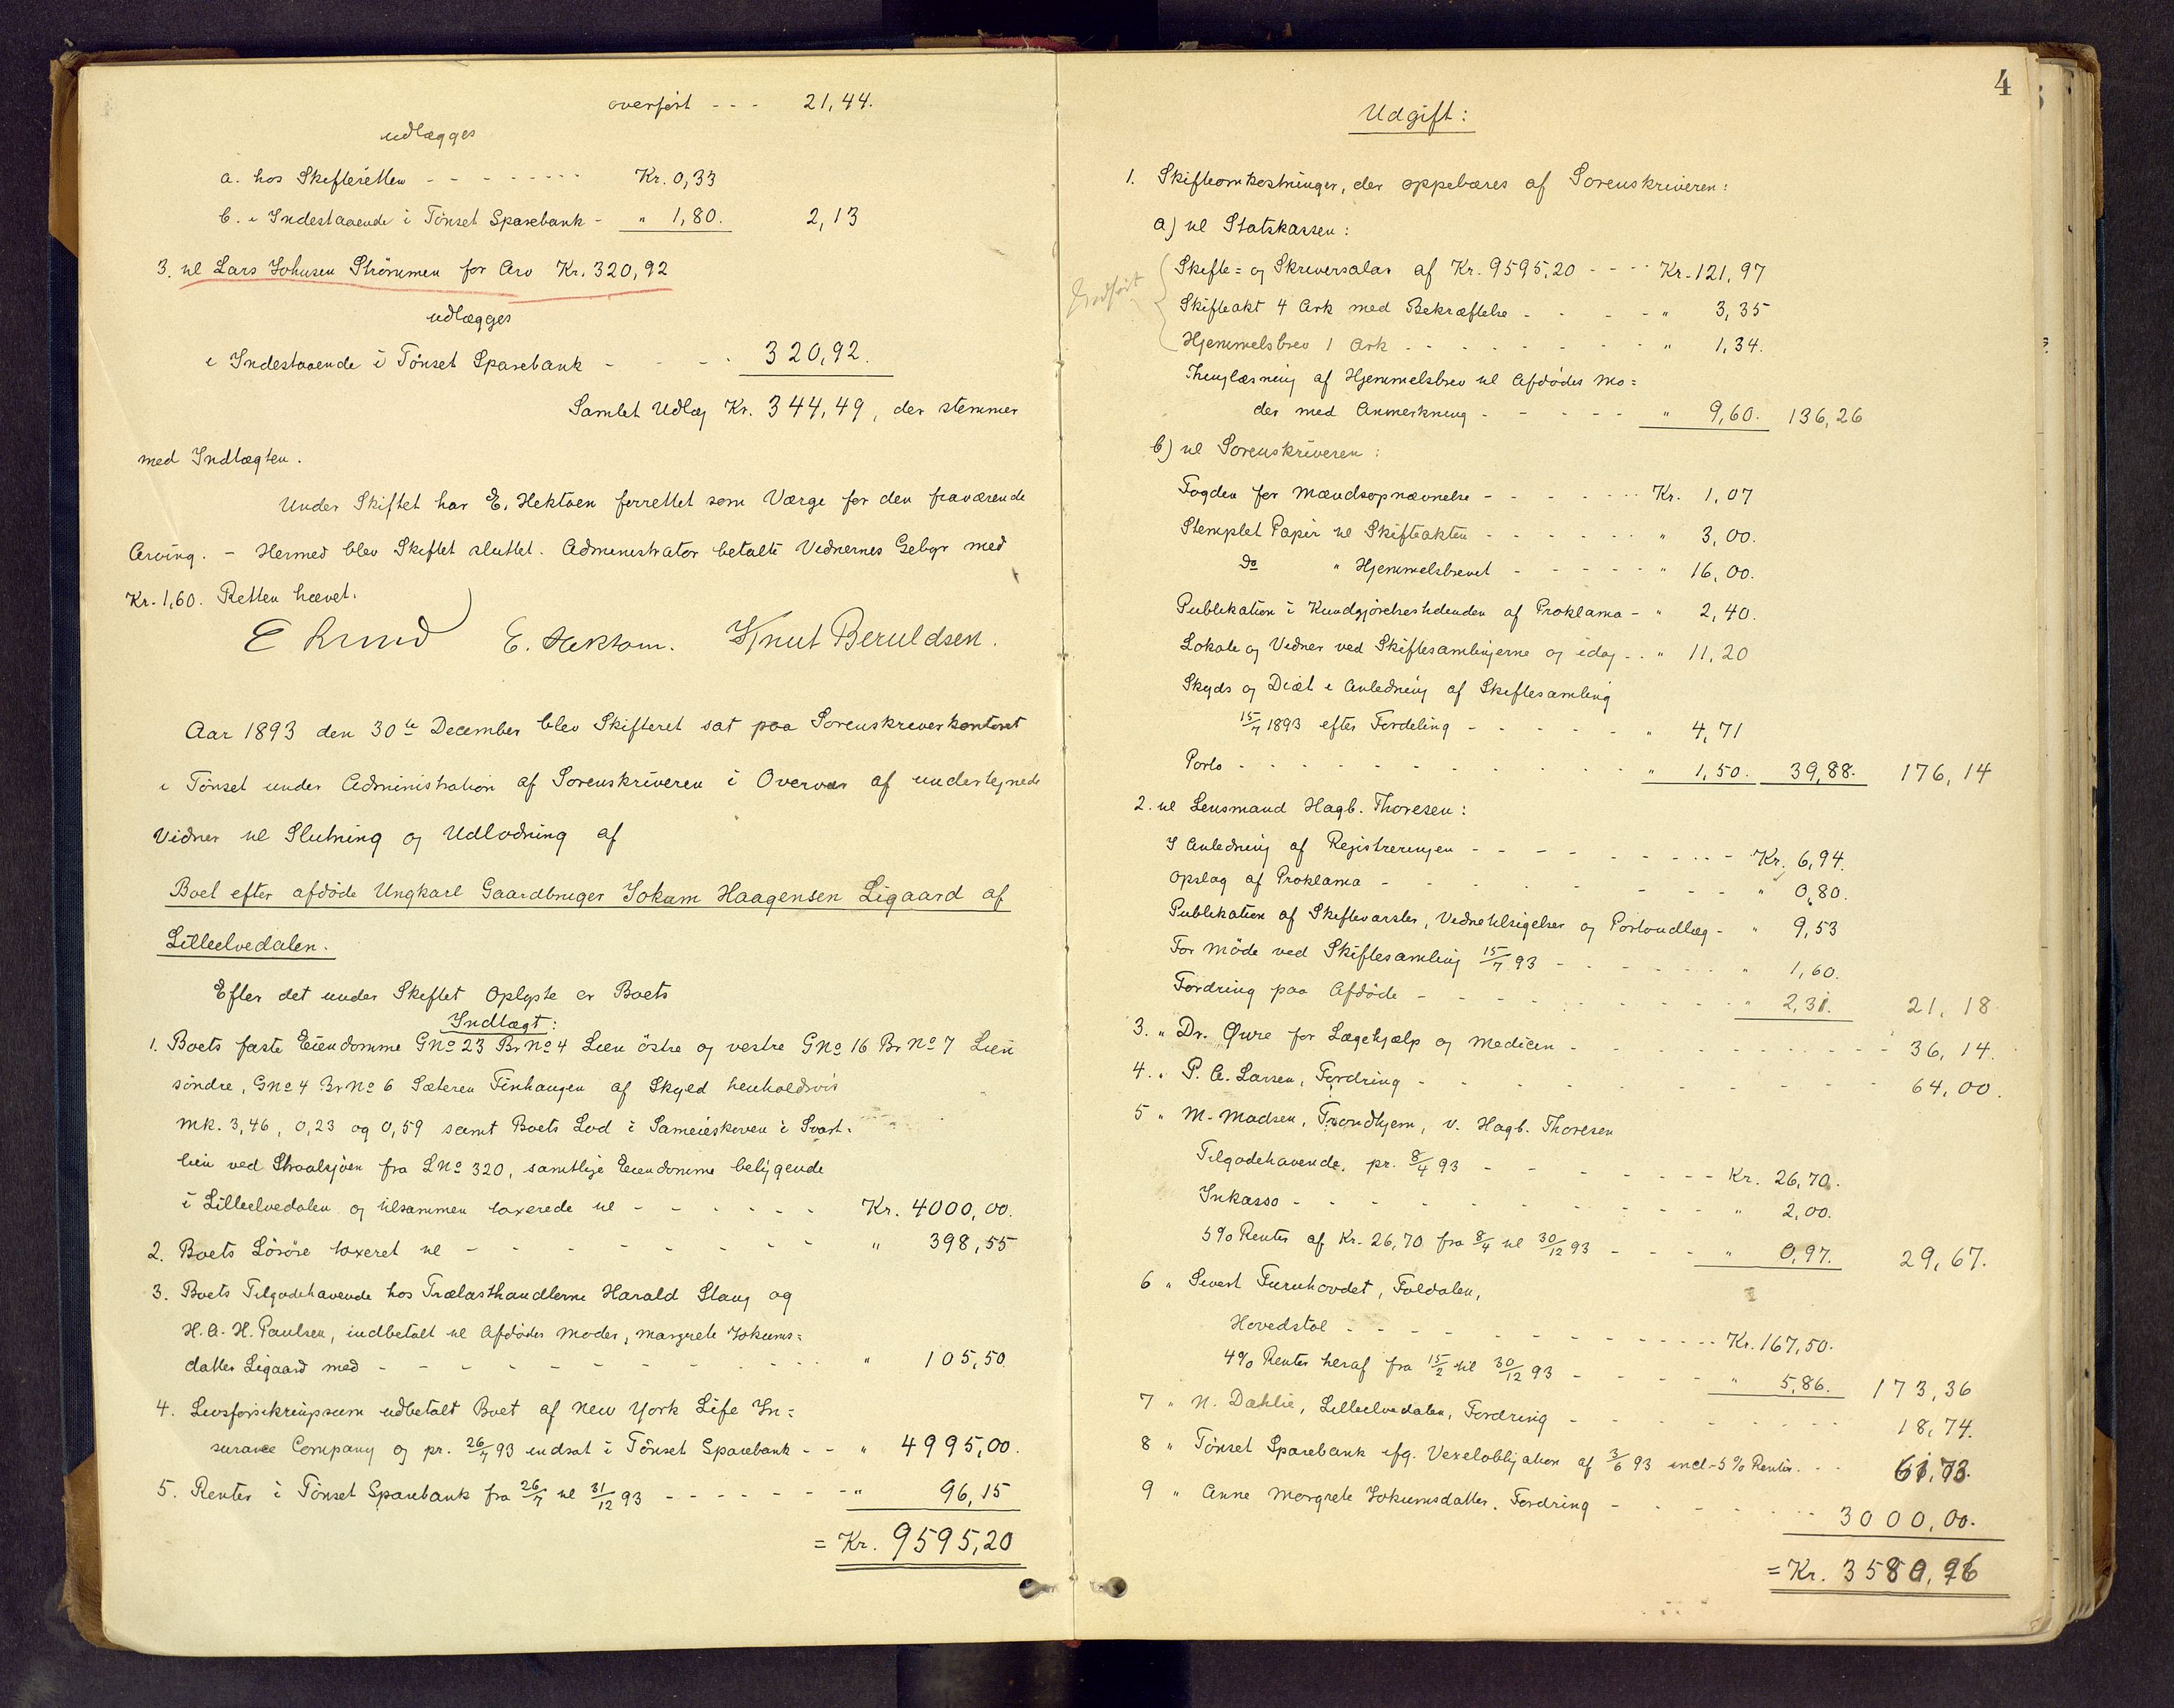 overført - - - 21,44.
udlægges
a. hos Skifteretten - - - - - - - - Kr. 0,33
b. i Indestaaende i Tönset Sparebank - " 1,80. 2,13
3. til Lars Johnsen Strömmen for Arv Kr. 320,92
udlægges
i Indestaaende i Tönset Sparebank - - - - 320,92.
Samlet Udlæg Kr. 344,49, der stemmer
med Indtægten.
Under Skiftet har E. Hektoen forrettet som Værge for den fraværende
Arving. - Hermed blev Skiftet sluttet. Administrator betalte Vidnernes Gebyr med
Kr. 1,60. Retten hævet.
E Lund E. Hektoen. Knut Beruldsen.
Aar 1893 den 30te December blev Skifteret sat paa Sorenskriverkontoret
i Tönset under Administration af Sorenskriveren i Overvær af undertegnede
Vidner til Slutning og Udlodning af
Boet efter afdöde Ungkarl Gaardbruger Jokum Haagensen Ligaard af
Lilleelvedalen.
Efter det under Skiftet Oplyste er Boets
Indtægt:
1. Boets faste Eiendomme GNo 23 BrNo 4 Lien östre og vestre GNo 16 BrNo 7 Lien
söndre, GNo 4 BrNo 6 Sæteren Finhaugen af Skyld henholdsvis
Mk. 3,46, 0,23 og 0,59 samt Boets Lod i Sameieskoven i Svart-
lien ved Straalsjöen fra LNo 320, samtlige Eiendomme beliggende
i Lilleelvedalen og tilsammen taxerede til - - - - - - Kr. 4000,00.
2. Boets Lösöre taxeret til - - - - - - - - " 398,55
3. Boets Tilgodehavende hos Trælasthandlerne Harald Stang og
H. A. H. Paulsen, indbetalt til Afdödes Moder, Margrete Jokums=
datter Ligaard med - - - - - - - - - - " 105,50.
4. Livsforsikringssum udbetalt Boet af New York Life In=
surance Company og pr. 26/7 93 indsat i Tönset Sparebank - - " 4995,00.
5. Renter i Tönset Sparebank fra 26/7 til 31/12 93 - - - - - - - " 96,15
= Kr. 9595,20
4
Udgift:
1. Skifteomkostninger, der oppebæres af Sorenskriveren:
a) til Statskassen:
Skifte= og Skriversalar af Kr. 9595,20 - - - - Kr. 121,97
Skifteakt 4 Ark med Bekræftelse - - - - " 3,35
Hjemmelsbrev 1 Ark - - - - - - - - " 1,34.
Thinglæsning af Hjemmelsbrev til Afdödes Mo=
der med Anmerkning - - - - - - " 9,60. 136,26
b) til Sorenskriveren:
Fogden for Mændsopnævnelse - - - - - - - Kr. 1,07
Stemplet Papir til Skifteakten - - - - - - " 3,00.
Do " Hjemmelsbrevet - - - - - " 16,00.
Publikation i Kundgjörelsestidenden af Proklama - " 2,40.
Lokale og Vidner ved Skiftesamlingerne og idag - - " 11,20
Skyds og Diæt i Anledning af Skiftesamling
15/7 1893 efter Fordeling - - - - - " 4,71
Porto - - - - - - - - - - - " 1,50. 39,88. 176,14
2. til Lensmand Hagb. Thoresen:
I Anledning af Registreringen - - - - - - - - Kr. 6,94.
Opslag af Proklama - - - - - - - - - " 0,80.
Publikation af Skiftevarsler, Vidnetilsigelser og Portoudlæg - " 9,53
For Möde ved Skiftesamling 15/7 93 - - - - - - " 1,60.
Fordring paa Afdöde - - - - - - - - - " 2,31. 21,18
3. " Dr. Qure for Lægehjælp og Medicin - - - - - - - - - - 36,14.
4. " P. A. Larsen, Fordring - - - - - - - - - - 64,00.
5 " M. Madsen, Trondhjem, v. Hagb. Thoresen
Tilgodehavende, pr. 8/4 93 - - - - - - - - - Kr. 26,70.
Inkasso - - - - - - - - - - - " 2,00.
5% Renter af Kr. 26,70 fra 8/4 til 30/12 93 - - - " 0,97. 29,67.
6 " Sivert Furuhovdet, Foldalen,
Hovedstol - - - - - - - - - - - Kr. 167,50.
4% Renter heraf fra 15/2 til 30/12 93 - - - - - " 5,86. 173,36
7 " N. Dahlie, Lilleelvedalen, Fordring - - - - - - - - - 18,74.
8 " Tönset Sparebank ifg. Vexelobligation af 3/6 93 incl. 5% Renter. - - 61,73.
9 " Anne Margrete Jokumsdatter, Fordring - - - - - - - 3000,00.
= Kr. 3580,96